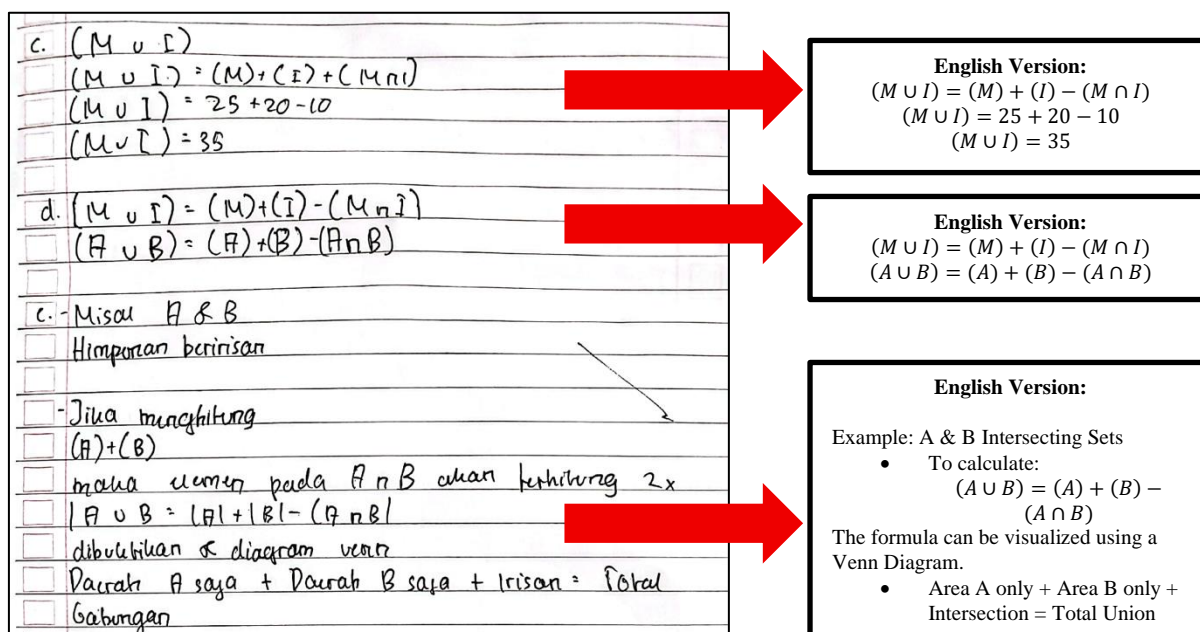 c. (M ∪ I)
(M ∪ I) = (M) + (I) + (M ∩ I)
(M ∪ I) = 25 + 20 - 10
(M ∪ I) = 35
d. (M ∪ I) = (M) + (I) - (M ∩ I)
(A ∪ B) = (A) + (B) - (A ∩ B)
e. - Misal A & B
Himpunan beririsan
- Jika menghitung
(A) + (B)
maka elemen pada A ∩ B akan terhitung 2x
|A ∪ B = |A| + |B| - (A ∩ B|
dibuktikan diagram venn
Daerah A saja + Daerah B saja + Irisan = Total
Gabungan
English Version:
(𝑀 ∪ 𝐼) = (𝑀) + (𝐼) − (𝑀 ∩ 𝐼)
(𝑀 ∪ 𝐼) = 25 + 20 − 10
(𝑀 ∪ 𝐼) = 35
English Version:
(𝑀 ∪ 𝐼) = (𝑀) + (𝐼) − (𝑀 ∩ 𝐼)
(𝐴 ∪ 𝐵) = (𝐴) + (𝐵) − (𝐴 ∩ 𝐵)
English Version:
Example: A & B Intersecting Sets
• To calculate:
(𝐴 ∪ 𝐵) = (𝐴) + (𝐵) −
(𝐴 ∩ 𝐵)
The formula can be visualized using a
Venn Diagram.
• Area A only + Area B only +
Intersection = Total Union